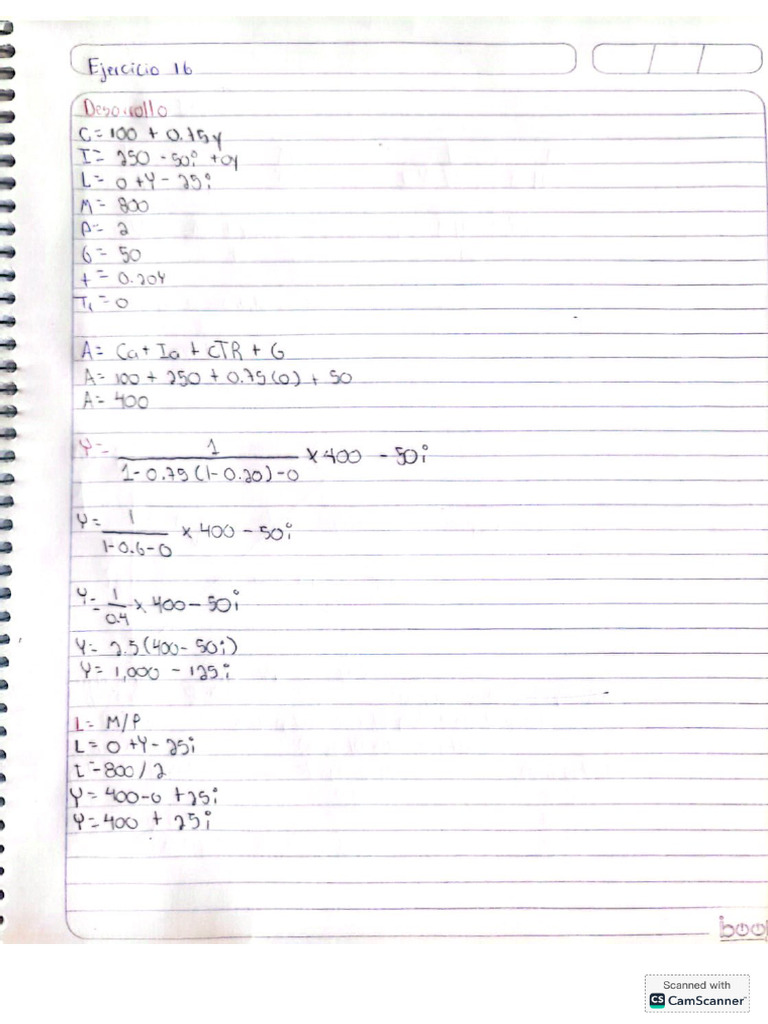 Ejercicio 16
Desarrollo
C = 100 + 0.75y
I = 250 - 50i + 0y
L = 0 + Y - 25i
M = 800
P = 2
G = 50
t = 0.20Y
T₁ = 0
A = Ca + Ia + cTR + G
A = 100 + 250 + 0.75(0) + 50
A = 400
Y = 1 / 1-0.75(1-0.20)-0 × 400 - 50i
Y = 1 / 1-0.6-0 × 400 - 50i
Y = 1 / 0.4 × 400 - 50i
Y = 2.5(400 - 50i)
Y = 1,000 - 125i
L = M/P
L = 0 + Y - 25i
L = 800/2
Y = 400 - 0 + 25i
Y = 400 + 25i
Scanned with
CS CamScanner